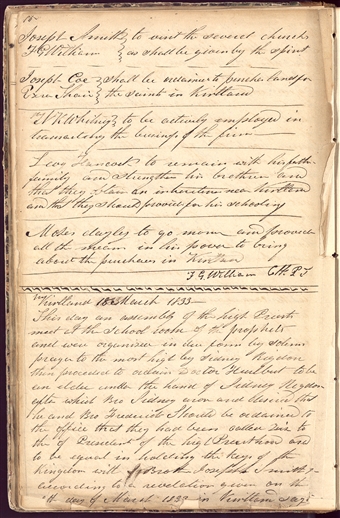 10-
Joseph Smith } to visit the several church
F G William } as shall be given by the spirit
Joseph Coe } shall be ordained to purchase lands for
Ezra Thair } the saints in Kirtland
N K Whitney to be actively employed in
transacting the business of the firm
Levy Hancock to remain with his fathr
family and strengthen his brethren and
that they obtain an inheritance near Kirtland
and that they should provide for his schooling
Moses dayley to go among and procure
all the means in his power to bring
about the purchases in Kirtland
F G William C.H.P.T
Kirtland 18 March 1833—
This day an assembly of the high Priests
meet at the School room of the prophets
and were organized in due form by solem
prayer to the most high by Sidney Rigdon
then proceeded to ordain Doctor Hurlbut to be
an elder under the hand of Sidney Rigdon
after which Bro Sidney arose and desired that
he and Bro Frederick Should be ordained to
the office that they had been called Viz to
the of President of the high Priesthood and
to be equal in holding the keys of the
Kingdom with Brother Joseph Smith Jr
according to a revelation given on the
8th day of March 1833 in Kirtland